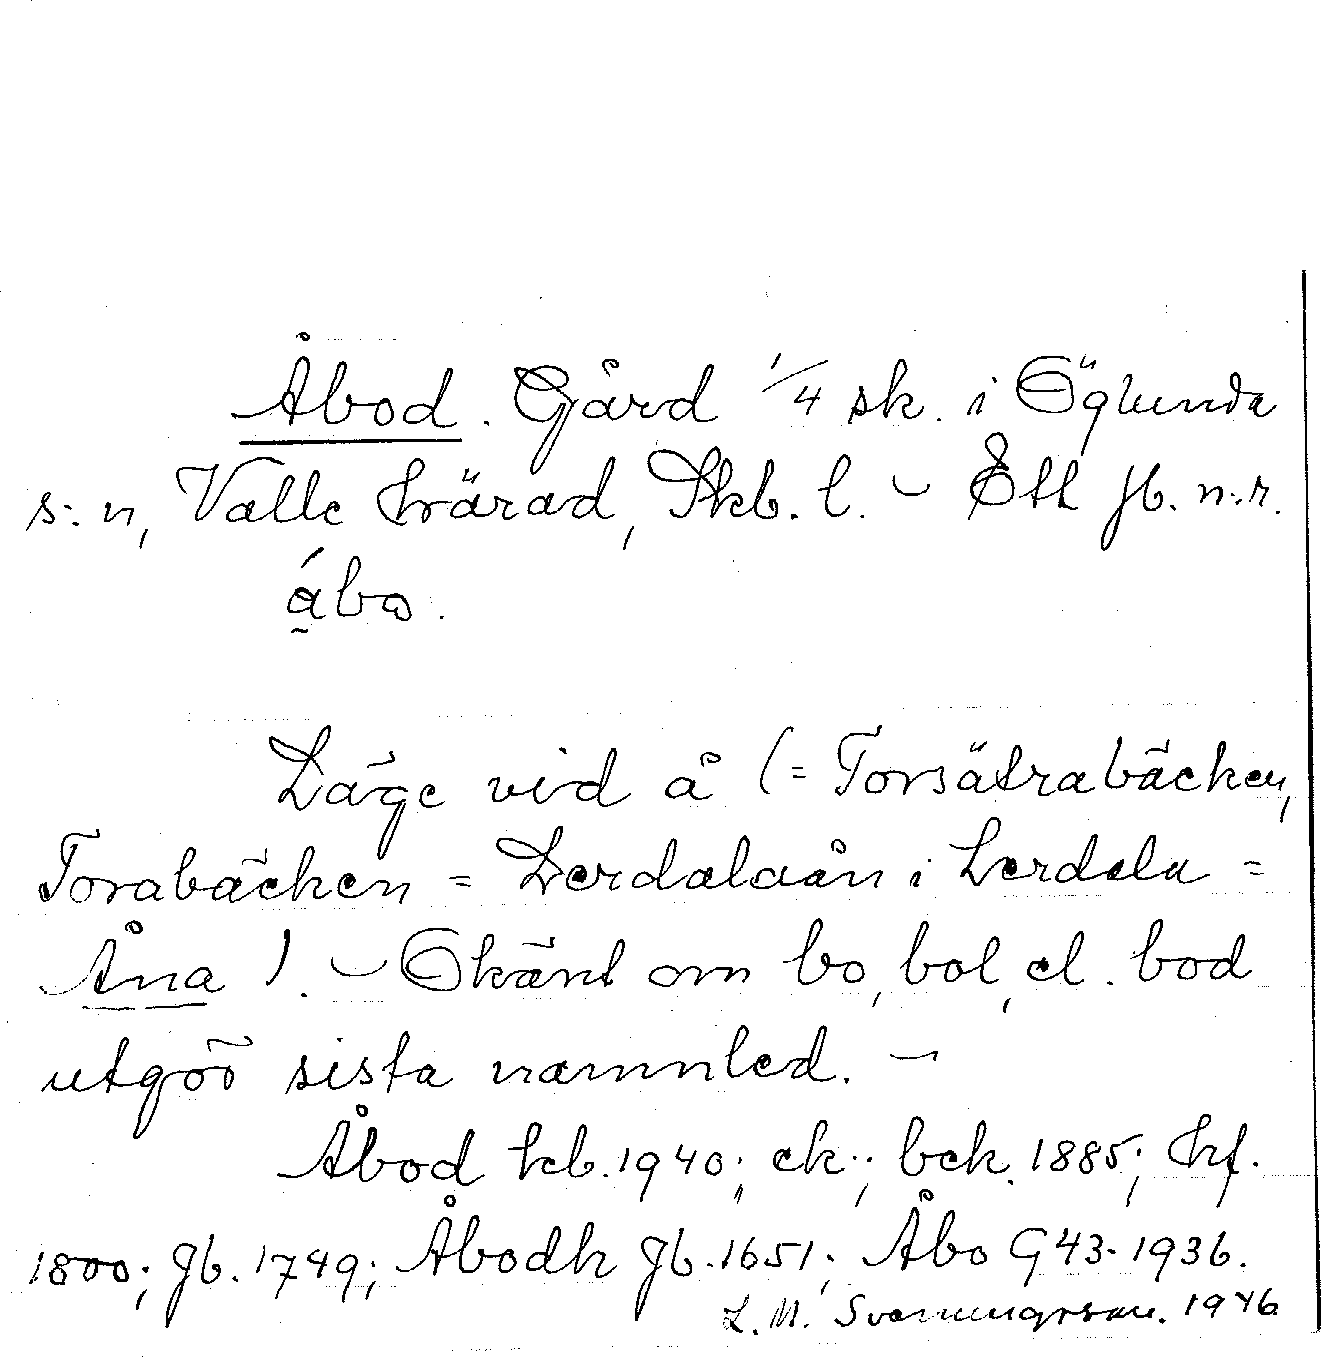 Åbod. Gård 1/4 sk. i Öglunda
s:n, Valle härad, Skb. l. – Ett jb. n:r.
ábo.
Läge vid å (= Torsätrabäcken,
Torabäcken = Lerdalaån i Lerdala =
Åna). – Okänt om bo, bol, el. bod
utgör sista namnled. –
Åbod kb. 1940; ek.; bek. 1885; hf.
1800; jb. 1749; Åbodh jb. 1651; Åbo G43. 1936.
L. M. Svenungsson. 1946